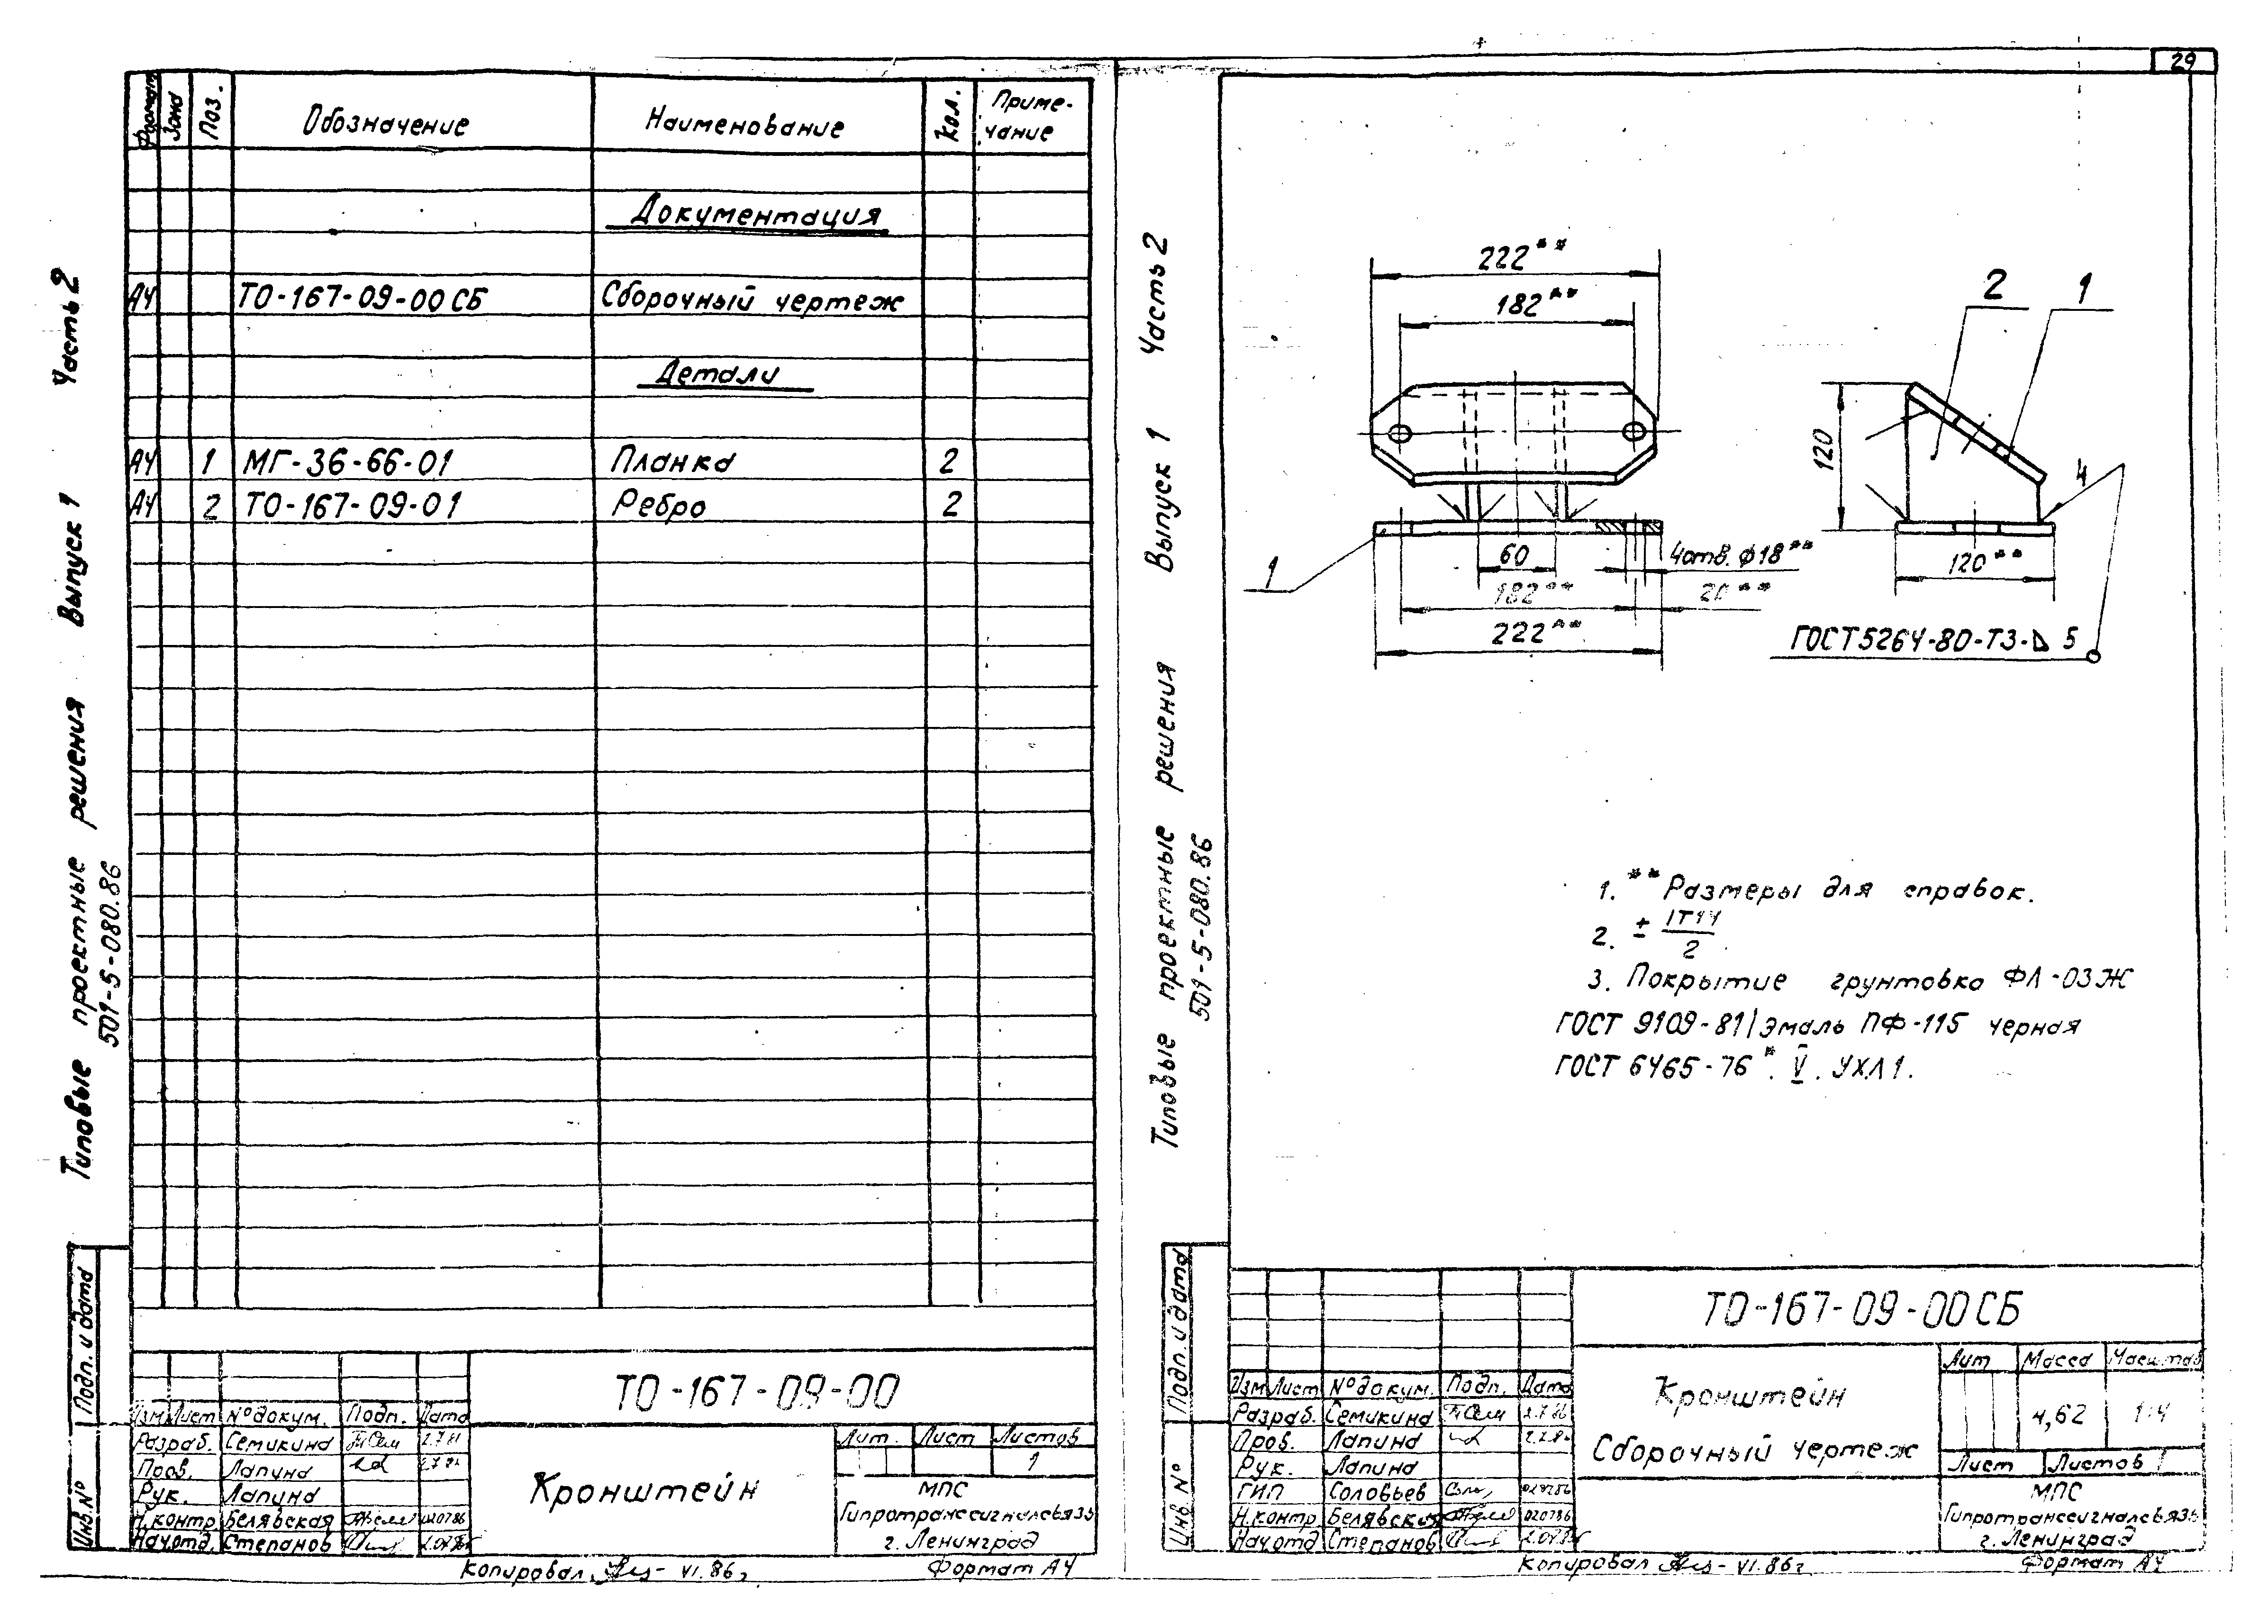 Типовые проектные решения Выпуск 1 Часть 2
501-5-080.86
Формат Зона Поз. Обозначение Наименование Кол. Приме-
чание
Документация
А4 ТО-167-09-00 СБ Сборочный чертеж
Детали
А4 1 МГ-36-66-01 Планка 2
А4 2 ТО-167-09-01 Ребро 2
Подп. и дата
Инв. №
ТО-167-09-00
Изм Лист № докум. Подп. Дата
Разраб. Семикина
Пров. Лапина
Рук. Лапина
Н.контр. Белявская 020786
Нач.отд. Степанов
Кронштейн
Лит. Лист Листов
1
МПС
Гипротранссигналсвязь
г. Ленинград
Копировал VI.86г
Формат А4
29
Типовые проектные решения Выпуск 1 Часть 2
501-5-080.86
222**
182**
2 1
120
4
60
4отв. ф18**
182**
20**
222**
1
120**
ГОСТ 5264-80-Т3-⊿ 5
1. ** Размеры для справок.
2. ± IT14
2
3. Покрытие грунтовка ФЛ-03Ж
ГОСТ 9109-81/эмаль ПФ-115 черная
ГОСТ 6465-76*. V. УХЛ1.
Подп. и дата
Инв. №
ТО-167-09-00 СБ
Изм Лист № докум. Подп. Дата
Разраб. Семикина 2.7.86
Пров. Лапина
Рук. Лапина
ГИП Соловьев
Н.контр. Белявская 020786
Нач.отд Степанов
Кронштейн
Сборочный чертеж
Лит Масса Масштаб
4,62 1:4
Лист Листов 1
МПС
Гипротранссигналсвязь
г. Ленинград
Копировал VI.86г
Формат А4